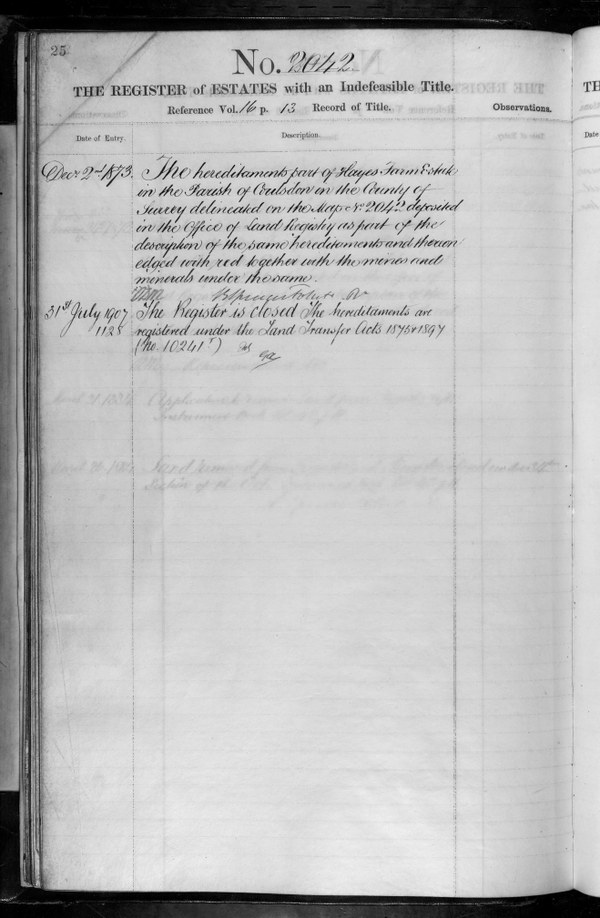 25
No. 2042
THE REGISTER of ESTATES with an Indefeasible Title.
Reference Vol. 16 p. 13 Record of Title.
Observations.
Date of Entry.
Description.
Decr. 2nd 1873.
The hereditaments part of Hayes Farm Estate
in the Parish of Coulsdon in the County of
Surrey delineated on the Map No. 2042 deposited
in the Office of Land Registry as part of the
description of the same hereditaments and thereon
edged with red together with the mines and
minerals under the same.
31st July 1907
1128
The Register is closed The hereditaments are
registered under the Land Transfer Acts 1875 & 1897
(No. 10241)
TH
Date